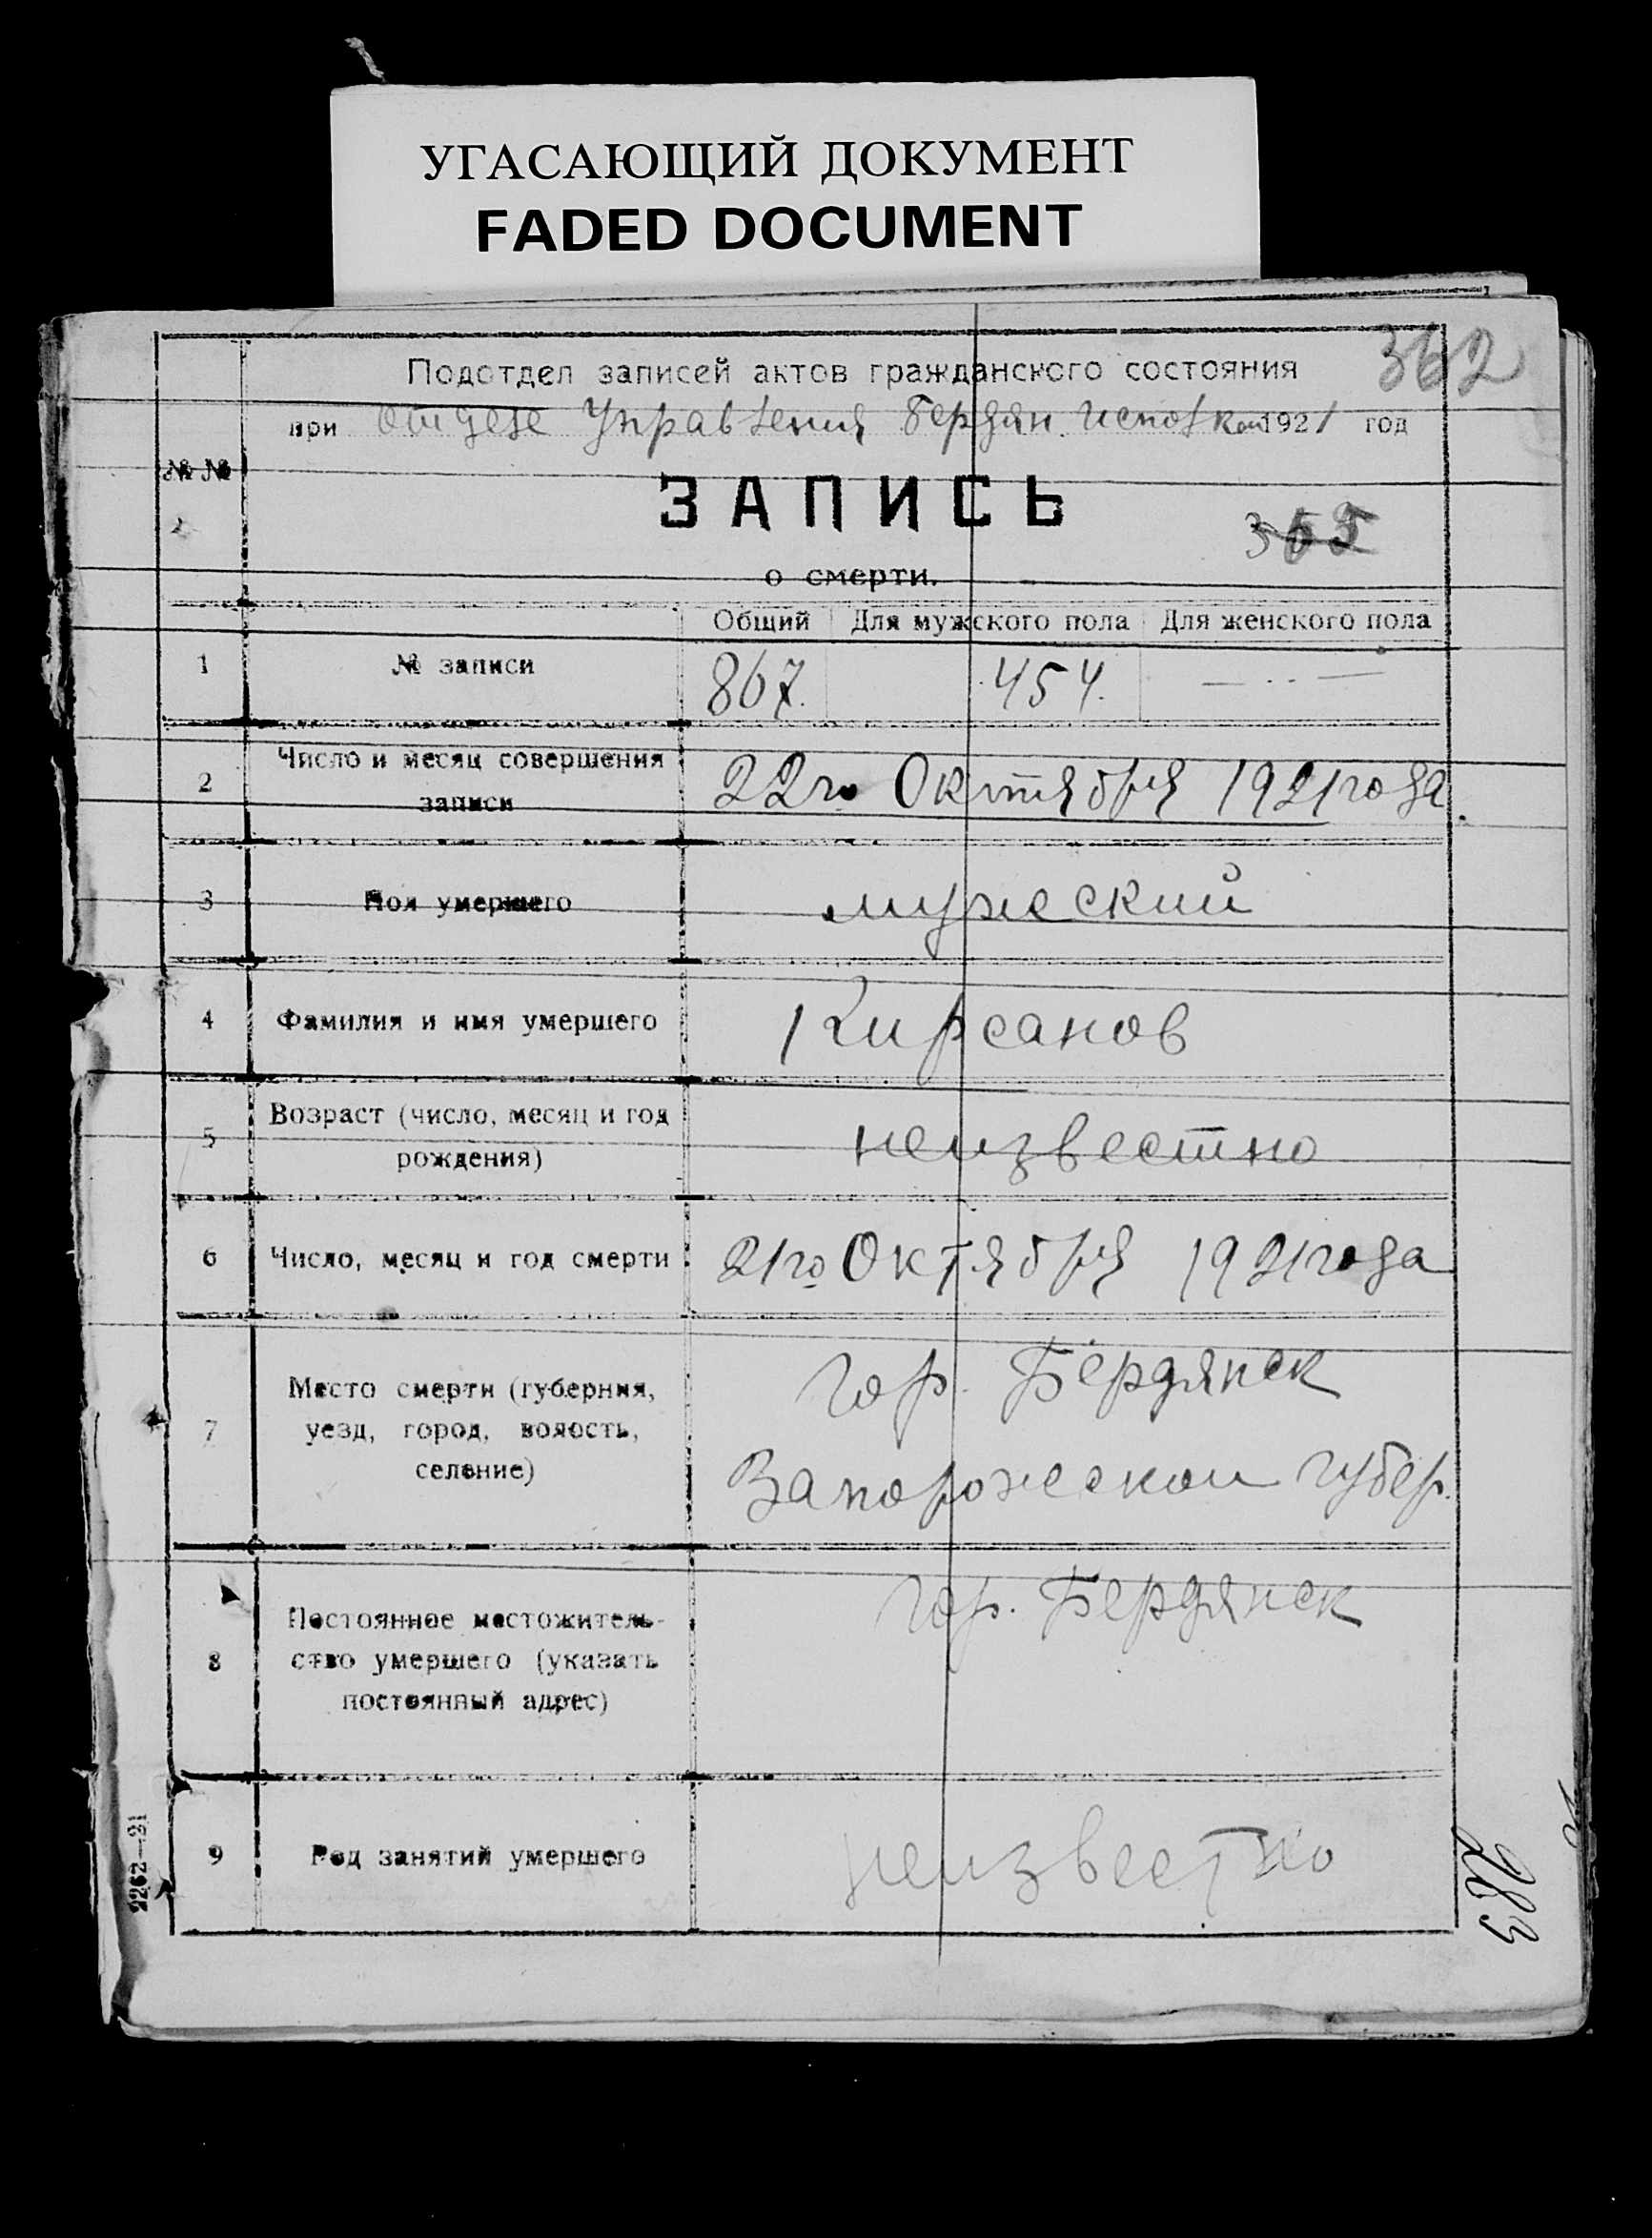 УГАСАЮЩИЙ ДОКУМЕНТ
FADED DOCUMENT
362
Подотдел записей актов гражданского состояния
при Отделе Управления Бердян. Исполком 1921 год
№ №
ЗАПИСЬ
355
о смерти.
Общий Для мужского пола Для женского пола
1 № записи 867. 454. — .. —
2 Число и месяц совершения
записи
22го Октября 1921 года.
3 Пол умершего мужеский
4 Фамилия и имя умершего Кирсанов
5 Возраст (число, месяц и год
рождения)
неизвестно
6 Число, месяц и год смерти 21го Октября 1921 года
7 Место смерти (губерния,
уезд, город, волость,
селение)
гор. Бердянск
Запорожеской губер.
8 Постоянное местожитель-
ство умершего (указать
постоянный адрес)
гор. Бердянск
9 Род занятий умершего неизвестно
2262—21
283